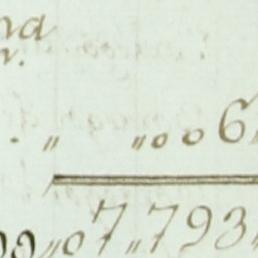 na
r.
. „ „006„
00„07„793„